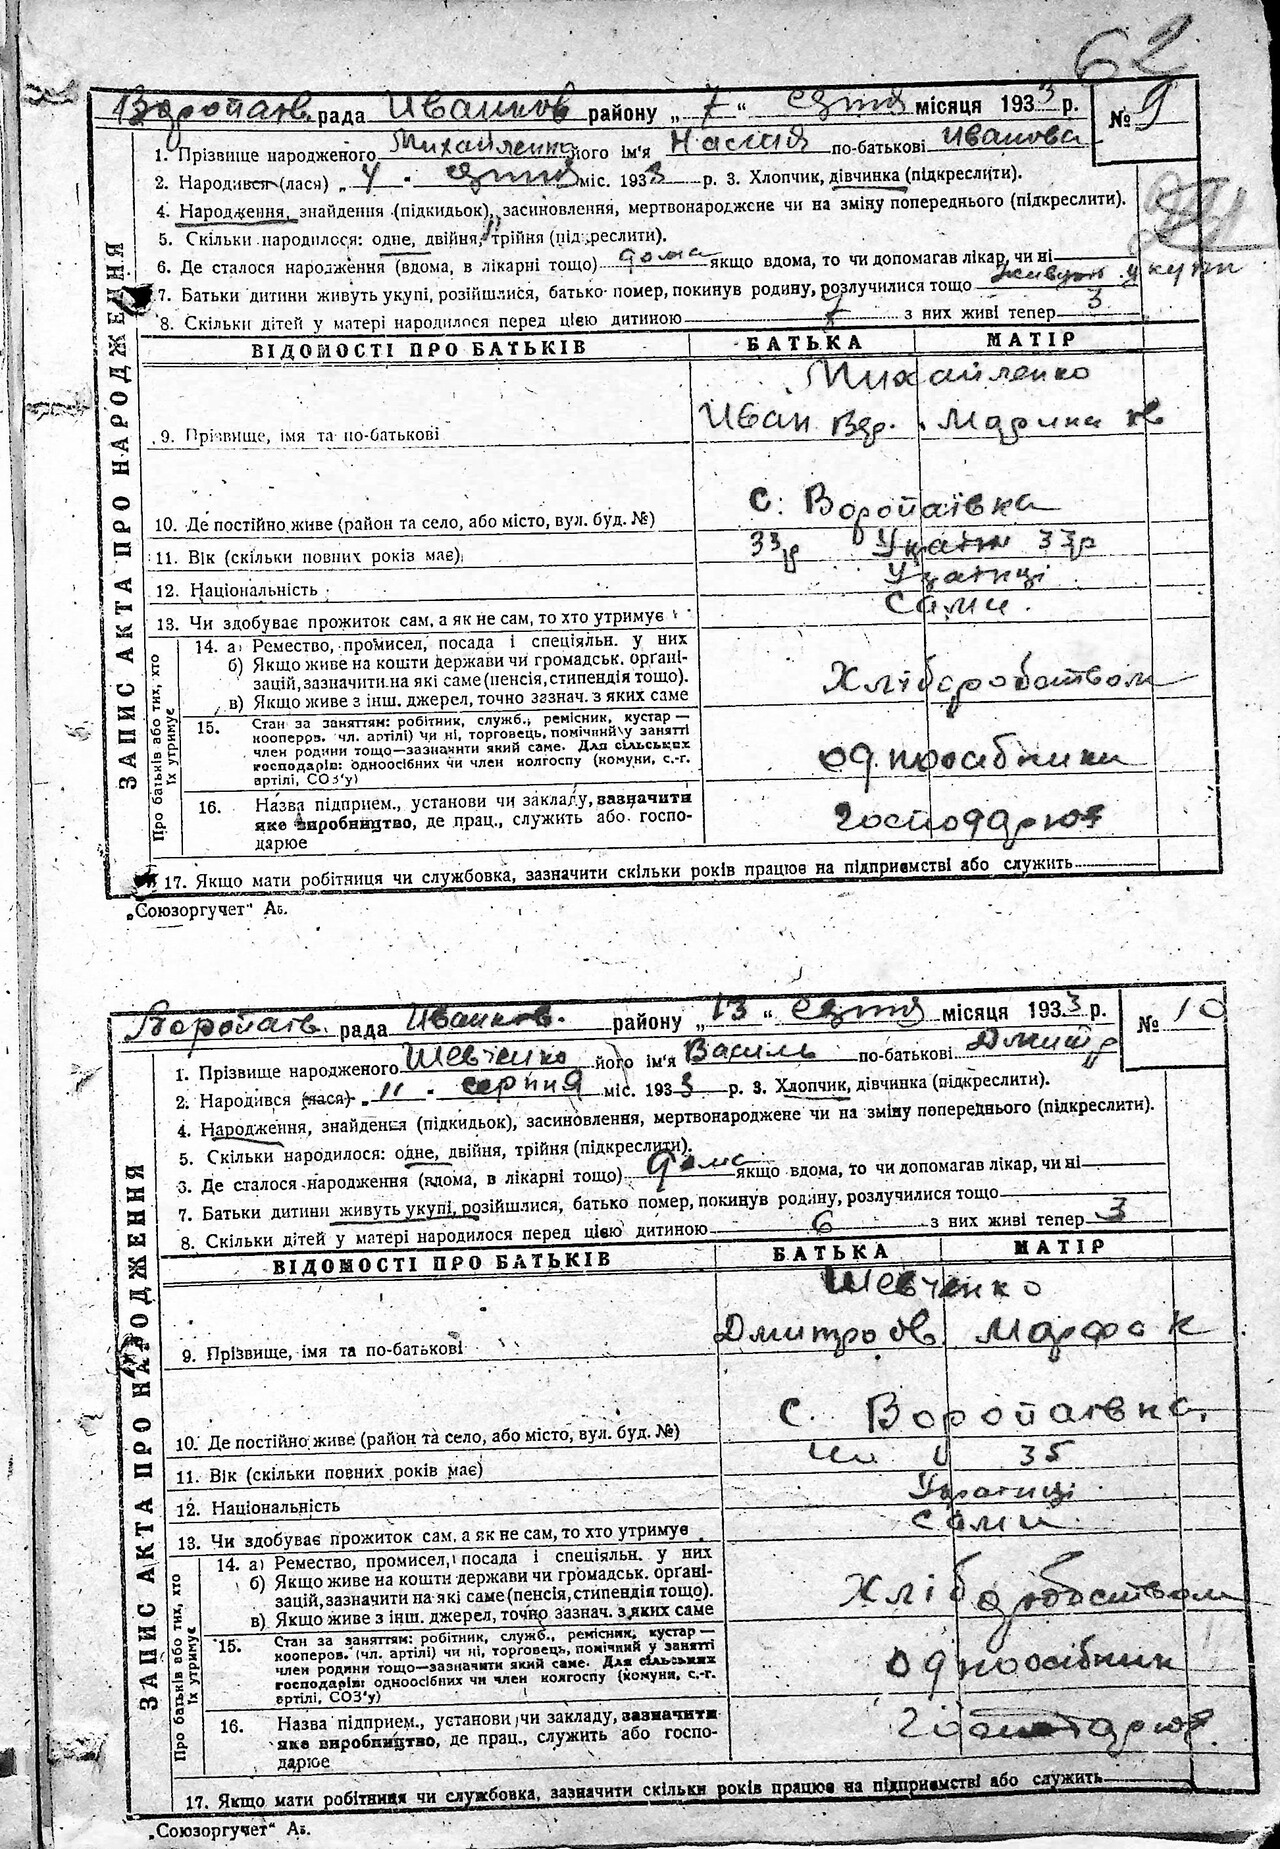 62
Воропаїв. рада Иванков району „ 7 “ серпня місяця 1933 р.
№ 9
1. Прізвище народженого Михайленко його ім'я Настя по-батькові Иванова
2. Народився (лася) „ 4 " серпня міс. 1933 р. 3. Хлопчик, дівчинка (підкреслити).
4. Народження, знайдення (підкидьок), засиновлення, мертвонароджене чи на зміну попереднього (підкреслити).
5. Скільки народилося: одне, двійня, трійня (підкреслити).
6. Де сталося народження (вдома, в лікарні тощо) дома якщо вдома, то чи допомагав лікар, чи ні
7. Батьки дитини живуть укупі, розійшлися, батько помер, покинув родину, розлучилися тощо живуть у купі
8. Скільки дітей у матері народилося перед цією дитиною 7 з них живі тепер 3
ЗАПИС АКТА ПРО НАРОДЖЕННЯ
ВІДОМОСТІ ПРО БАТЬКІВ БАТЬКА МАТІР
Михайленко
9. Прізвище, імя та по-батькові Иван Марина
10. Де постійно живе (район та село, або місто, вул. буд. №) с. Воропаївка
11. Вік (скільки повних років має) 33р 33р
12. Національність Українці
13. Чи здобуває прожиток сам, а як не сам, то хто утримує сами.
Про батьків або тих, хто їх утримує
14. а) Ремество, промисел, посада і спеціяльн. у них
б) Якщо живе на кошти держави чи громадськ. органі-
зацій, зазначити на які саме (пенсія, стипендія тощо).
в) Якщо живе з інш. джерел, точно зазнач. з яких саме
Хліборобством
15. Стан за заняттям: робітник, служб., ремісник, кустар —
кооперов. чл. артілі) чи ні, торговець, помічний у занятті
член родини тощо—зазначити який саме. Для сільських
господарів: одноосібних чи член колгоспу (комуни, с.-г.
артілі, СОЗ'у)
одноосібники
16. Назва підприєм., установи чи закладу, зазначити
яке виробництво, де прац., служить або госпо-
дарює
господарюя
17. Якщо мати робітниця чи службовка, зазначити скільки років працює на підприємстві або служить
„Союзоргучет“ Аб.
Воропаїв. рада Иванков. району „ 13 “ серпня місяця 1933 р.
№ 10
1. Прізвище народженого Шевченко його ім'я Василь по-батькові Дмитр
2. Народився (лася) „ 11 " серпня міс. 1933 р. 3. Хлопчик, дівчинка (підкреслити).
4. Народження, знайдення (підкидьок), засиновлення, мертвонароджене чи на зміну попереднього (підкреслити).
5. Скільки народилося: одне, двійня, трійня (підкреслити).
6. Де сталося народження (вдома, в лікарні тощо) дома якщо вдома, то чи допомагав лікар, чи ні
7. Батьки дитини живуть укупі, розійшлися, батько помер, покинув родину, розлучилися тощо
8. Скільки дітей у матері народилося перед цією дитиною 6 з них живі тепер 3
ЗАПИС АКТА ПРО НАРОДЖЕННЯ
ВІДОМОСТІ ПРО БАТЬКІВ БАТЬКА МАТІР
Шевченко
9. Прізвище, імя та по-батькові Дмитро Марфа К
10. Де постійно живе (район та село, або місто, вул. буд. №) с. Воропаївка.
11. Вік (скільки повних років має) 35
12. Національність Українці
13. Чи здобуває прожиток сам, а як не сам, то хто утримує сами
Про батьків або тих, хто їх утримує
14. а) Ремество, промисел, посада і спеціяльн. у них
б) Якщо живе на кошти держави чи громадськ. органі-
зацій, зазначити на які саме (пенсія, стипендія тощо).
в) Якщо живе з інш. джерел, точно зазнач. з яких саме
Хліборобством
15. Стан за заняттям: робітник, служб., ремісник, кустар —
кооперов. (чл. артілі) чи ні, торговець, помічний у занятті
член родини тощо—зазначити який саме. Для сільських
господарів: одноосібних чи член колгоспу (комуни, с.-г.
артілі, СОЗ'у)
одноосібник
16. Назва підприєм., установи чи закладу, зазначити
яке виробництво, де прац., служить або госпо-
дарює
17. Якщо мати робітниця чи службовка, зазначити скільки років працює на підприємстві або служить
„Союзоргучет“ Аб.